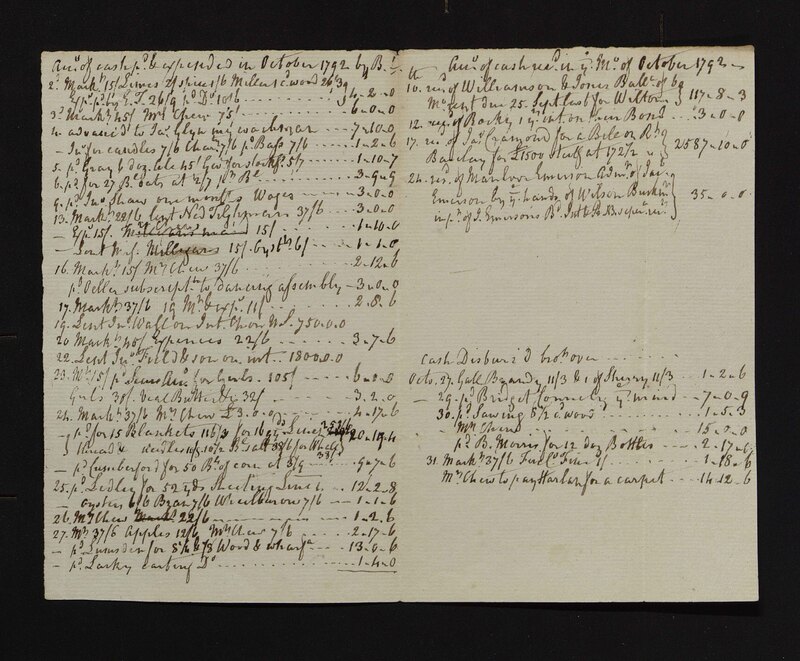 Acct. of cash pd. & expended in October 1792 by B.
2. Markt. 15/ Limes 2/ spice 1/6 Miller 1 Cword 26/3
Exps. pd. by E.T. 26/9 pd. Do. 10/6 4-2-0
3. Markt. 45/ Mrs Chew 75/ 6-0-0
4. advanc'd to Jas. Glyn my coachman 7-10-0
- Jno. for candles 7/6 Chair 7/6 pd. Bass 7/6 1-2-6
5. pd. Gray 6 doz. ale 45/ for Stockgs. 1-10-7
6. pd. for 27 Bs. Oats at 2/7 p. B. 3-9-9
9. pd. Jno. Shaw one months Wages 3-0-0
13. Markt. 22/6 Lent Ned Tilghman 37/6 3-0-0
- Exps. 15/ 15/ 1-10-0
- Lent 15/ Oysts. 6/ 1-1-0
16. Markt. 15/ Mrs Chew 37/6 2-12-6
pd. Oeller subscript. to dancing assembly 3-0-0
17. Markt. 37/6 19 Mt. & exps. 11/ 2-8-6
19. Lent Jno. Wall on Int. 750.0.0
20 Markt. 45/ expences 22/6 3-7-6
22. Lent Jno. Field & son on int. 1800.0.0
23. Mt. 15/ pd. for Girls. 105/ 6-0-0
Girls 35/ Veal 32/ 3-2-0
24. Markt. 37/6 Mrs Chew £3.0.0 4-17-6
- pd. for 15 Blankets 116/3 for 16 yds. Linen
thread & needles 11/ 20-19-4
- pd. Cumberford for 50 Bs. of corn at 3/9 9-7-6
25. pd. Dedley for 52 yds Sheeting Linen 12-2-8
- oysters 6/6 Bran 7/6 Wheelbarrow 7/6 1-1-6
26. Mrs Chew 22/6 1-2-6
27. Mt. 37/6 Apples 12/6 Mrs Chew 7/6 2-17-6
- pd. Lumsden for Wood & wharfa. 13-0-6
- pd. Larky carting Do. 1-4-0
Acct. of cash recd. in ye. Mo. of October 1792
10. recd. of Williamson & Jones Balle. of
Mo. rent due 25. Septr. last for Wilton 117-8-3
12. recd. of Backy 1 yrs. int. on his Bond 3-0-0
17. recd. of Jas. Cramond for a Bill on Rt.
Barclay for £1500 Sterlg. at 172½ 2587-10-0
24. recd. of Manlove Emerson Admr. of Jac.
Emerson by ye. hands of Wilson Buckmr.
in pt. of J. Emersons Bd. 35-0-0
Cash Disburs'd brot. over
Octo. 27. Gall Brandy 11/3 & 1 of Sherry 11/3 1-2-6
- 29. pd. Bridget Connelly ye. maid 7-0-9
30. pd. Sawing 5½ C wood 1-5-3
- Mrs Chew 15-0-0
pd. B. Morris for 12 doz Bottles 2-17-6
31. Markt. 37/6 Fire Co. Fine 1/ 1-18-6
Mrs Chew to pay Harlan for a carpet 14-12-6